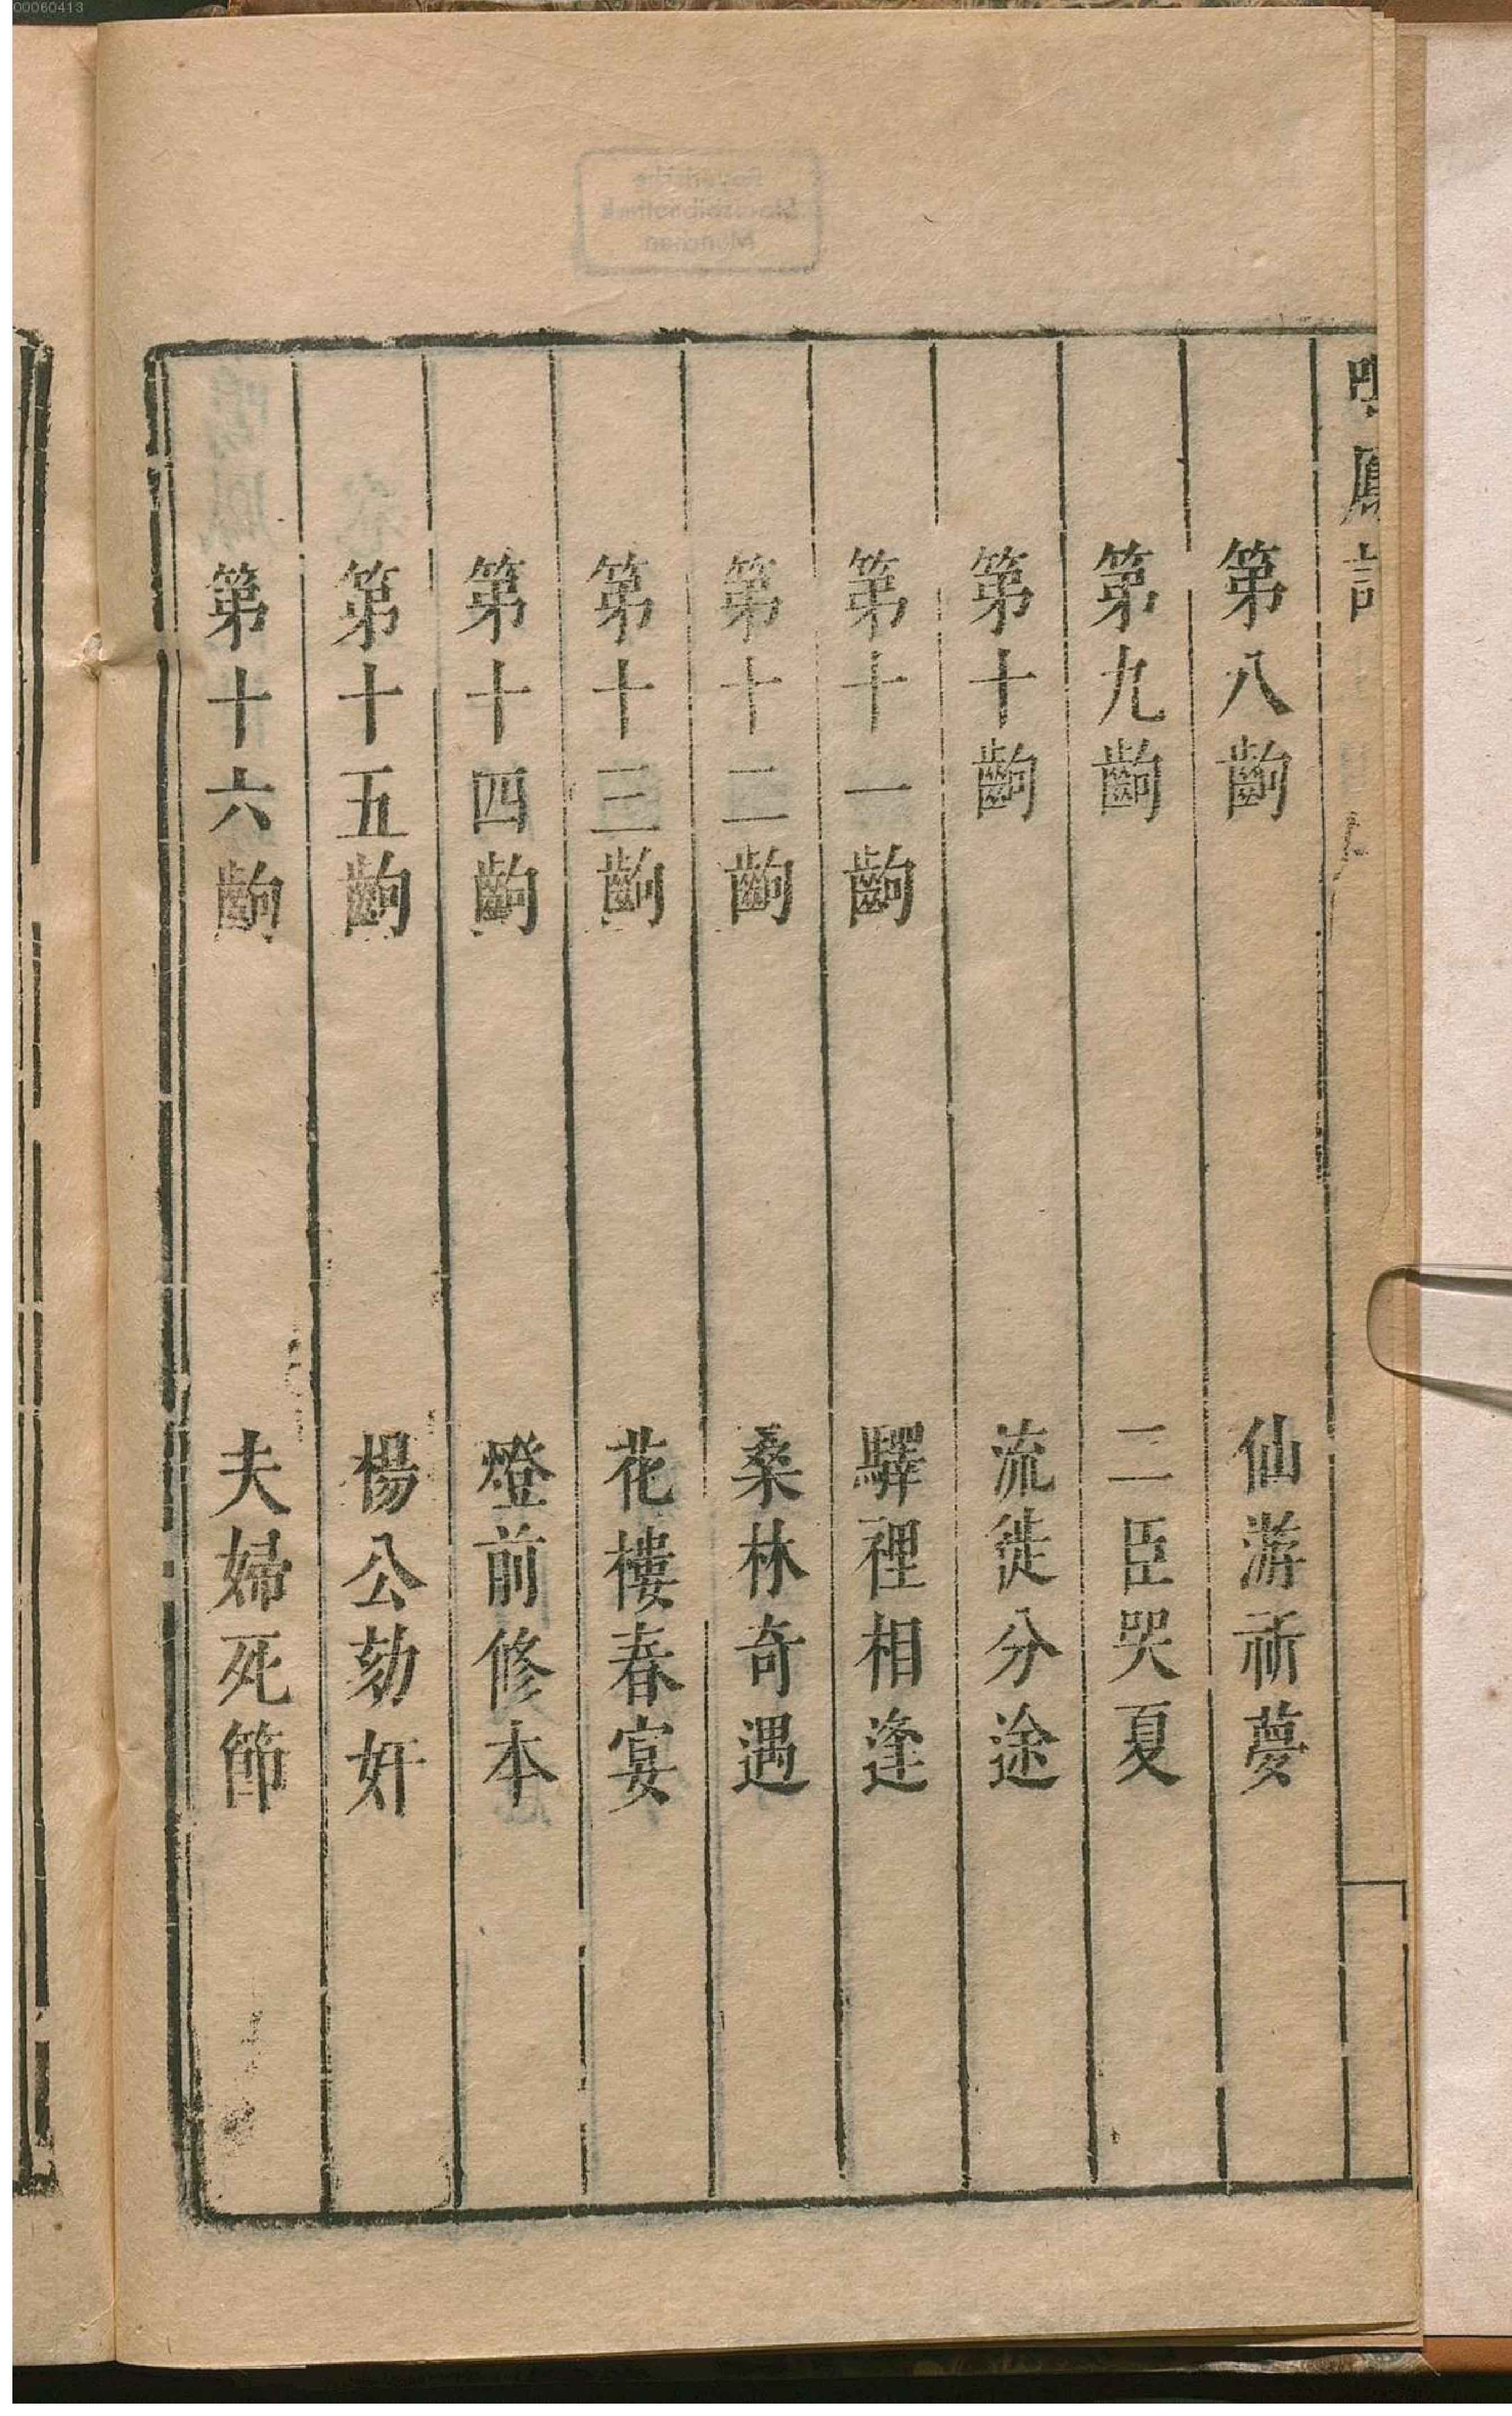 00060413
鳴鳳記
第八齣 仙游祈夢
第九齣 二臣哭夏
第十齣 流徙分途
第十一齣 驛裡相逢
第十二齣 桑林奇遇
第十三齣 花樓春宴
第十四齣 燈前修本
第十五齣 楊公劾奸
第十六齣 夫婦死節